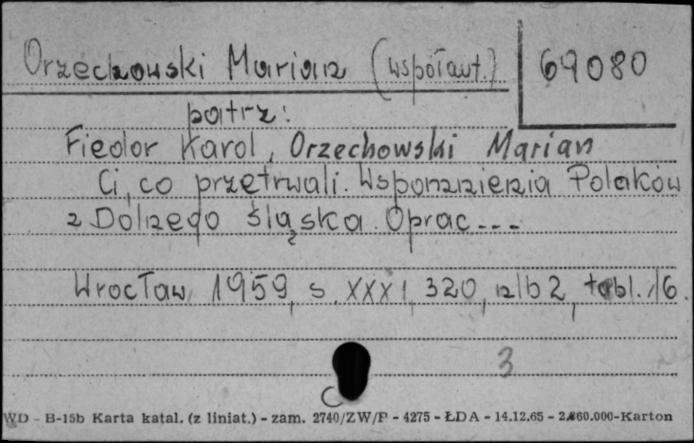 Orzechowski Marian (współaut.) 69080
patrz:
Fiedor Karol, Orzechowski Marian
Ci, co przetrwali. Wspomnienia Polaków
z Dolnego Śląska. Oprac---
Wrocław, 1959, s. XXXI, 320, nlb 2, tabl. 16.
3
C
WD - B-15b Karta katal. (z liniat.) - zam. 2740/ZW/P - 4275 - ŁDA - 14.12.65 - 2.860.000-Karton